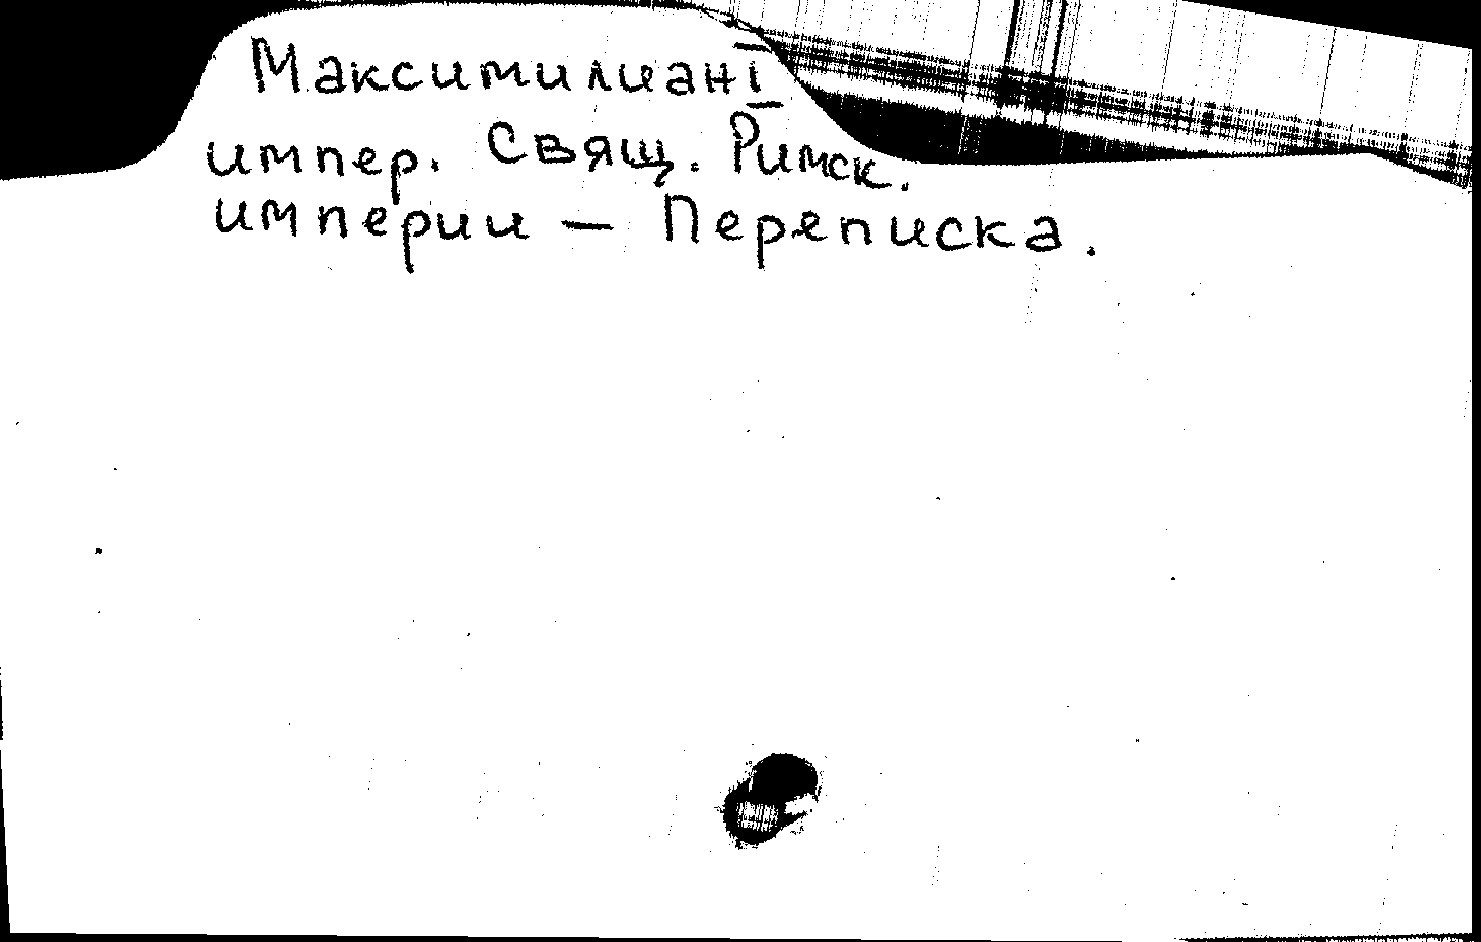 Максимилиан I
импер. Свящ. Римск.
империи — Переписка.